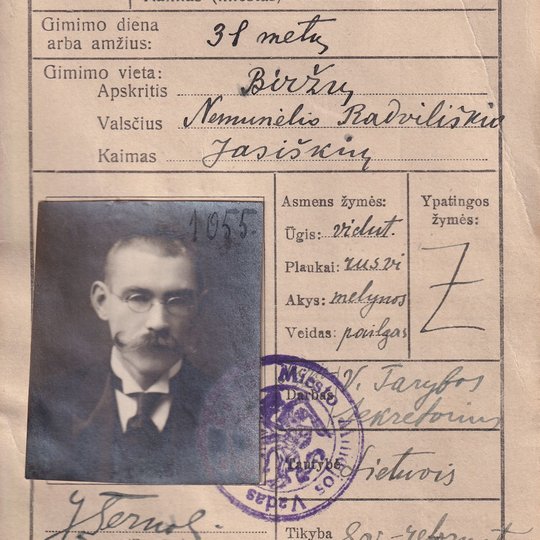 Gimimo diena
arba amžius: 38 metų
Gimimo vieta:
Apskritis Biržų
Valsčius Nemunėlio Radviliškio
Kaimas Jasiškių
1055.
Asmens žymės:
Ūgis: vidut.
Plaukai: rusvi
Akys: melynos
Veidas: pailgas
Ypatingos
žymės:
Z
Darbas V. Tarybos
Sekretorius
Tautybė Lietuvis
Tikyba
Miesto Milicijos Vadas